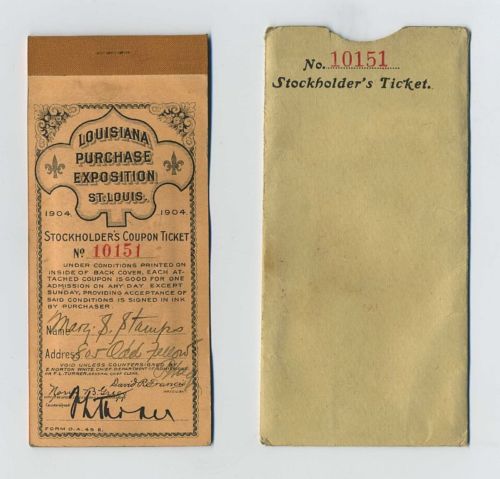 LOUISIANA
PURCHASE
EXPOSITION
ST. LOUIS.
1904 1904
STOCKHOLDER'S COUPON TICKET
No 10151
UNDER CONDITIONS PRINTED ON
INSIDE OF BACK COVER, EACH AT-
TACHED COUPON IS GOOD FOR ONE
ADMISSION ON ANY DAY EXCEPT
SUNDAY, PROVIDING ACCEPTANCE OF
SAID CONDITIONS IS SIGNED IN INK
BY PURCHASER
Name Mary S. Stamps
Address Odd Fellow
VOID UNLESS COUNTERSIGNED BY
E. NORTON WHITE, CHIEF DEPARTMENT OF
OR F.L. TURNER, GENERAL CHIEF CLERK.
David R. Francis
FORM D.A. 45 E.
No. 10151
Stockholder's Ticket.